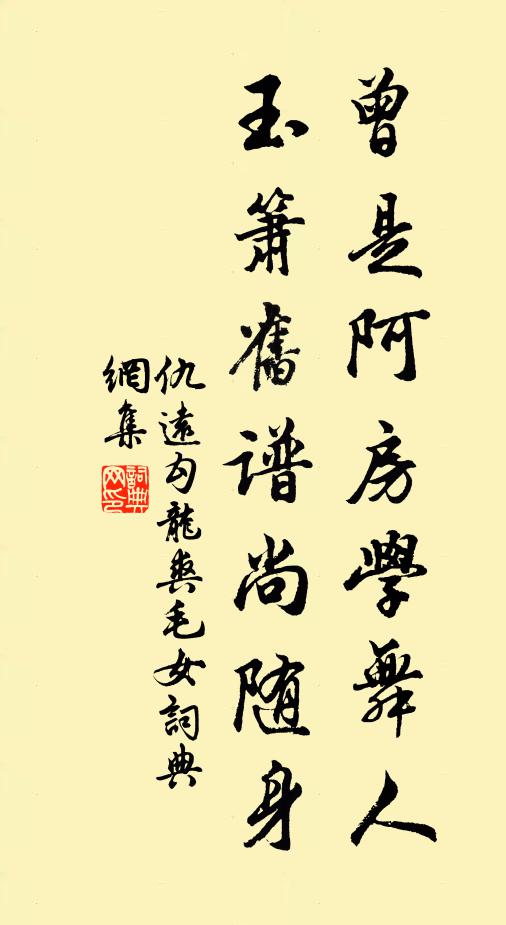 曾是阿房學舞人
玉簫舊谱尚随身
仇遠勾龍爽毛女詞典
網集
詞典
网印